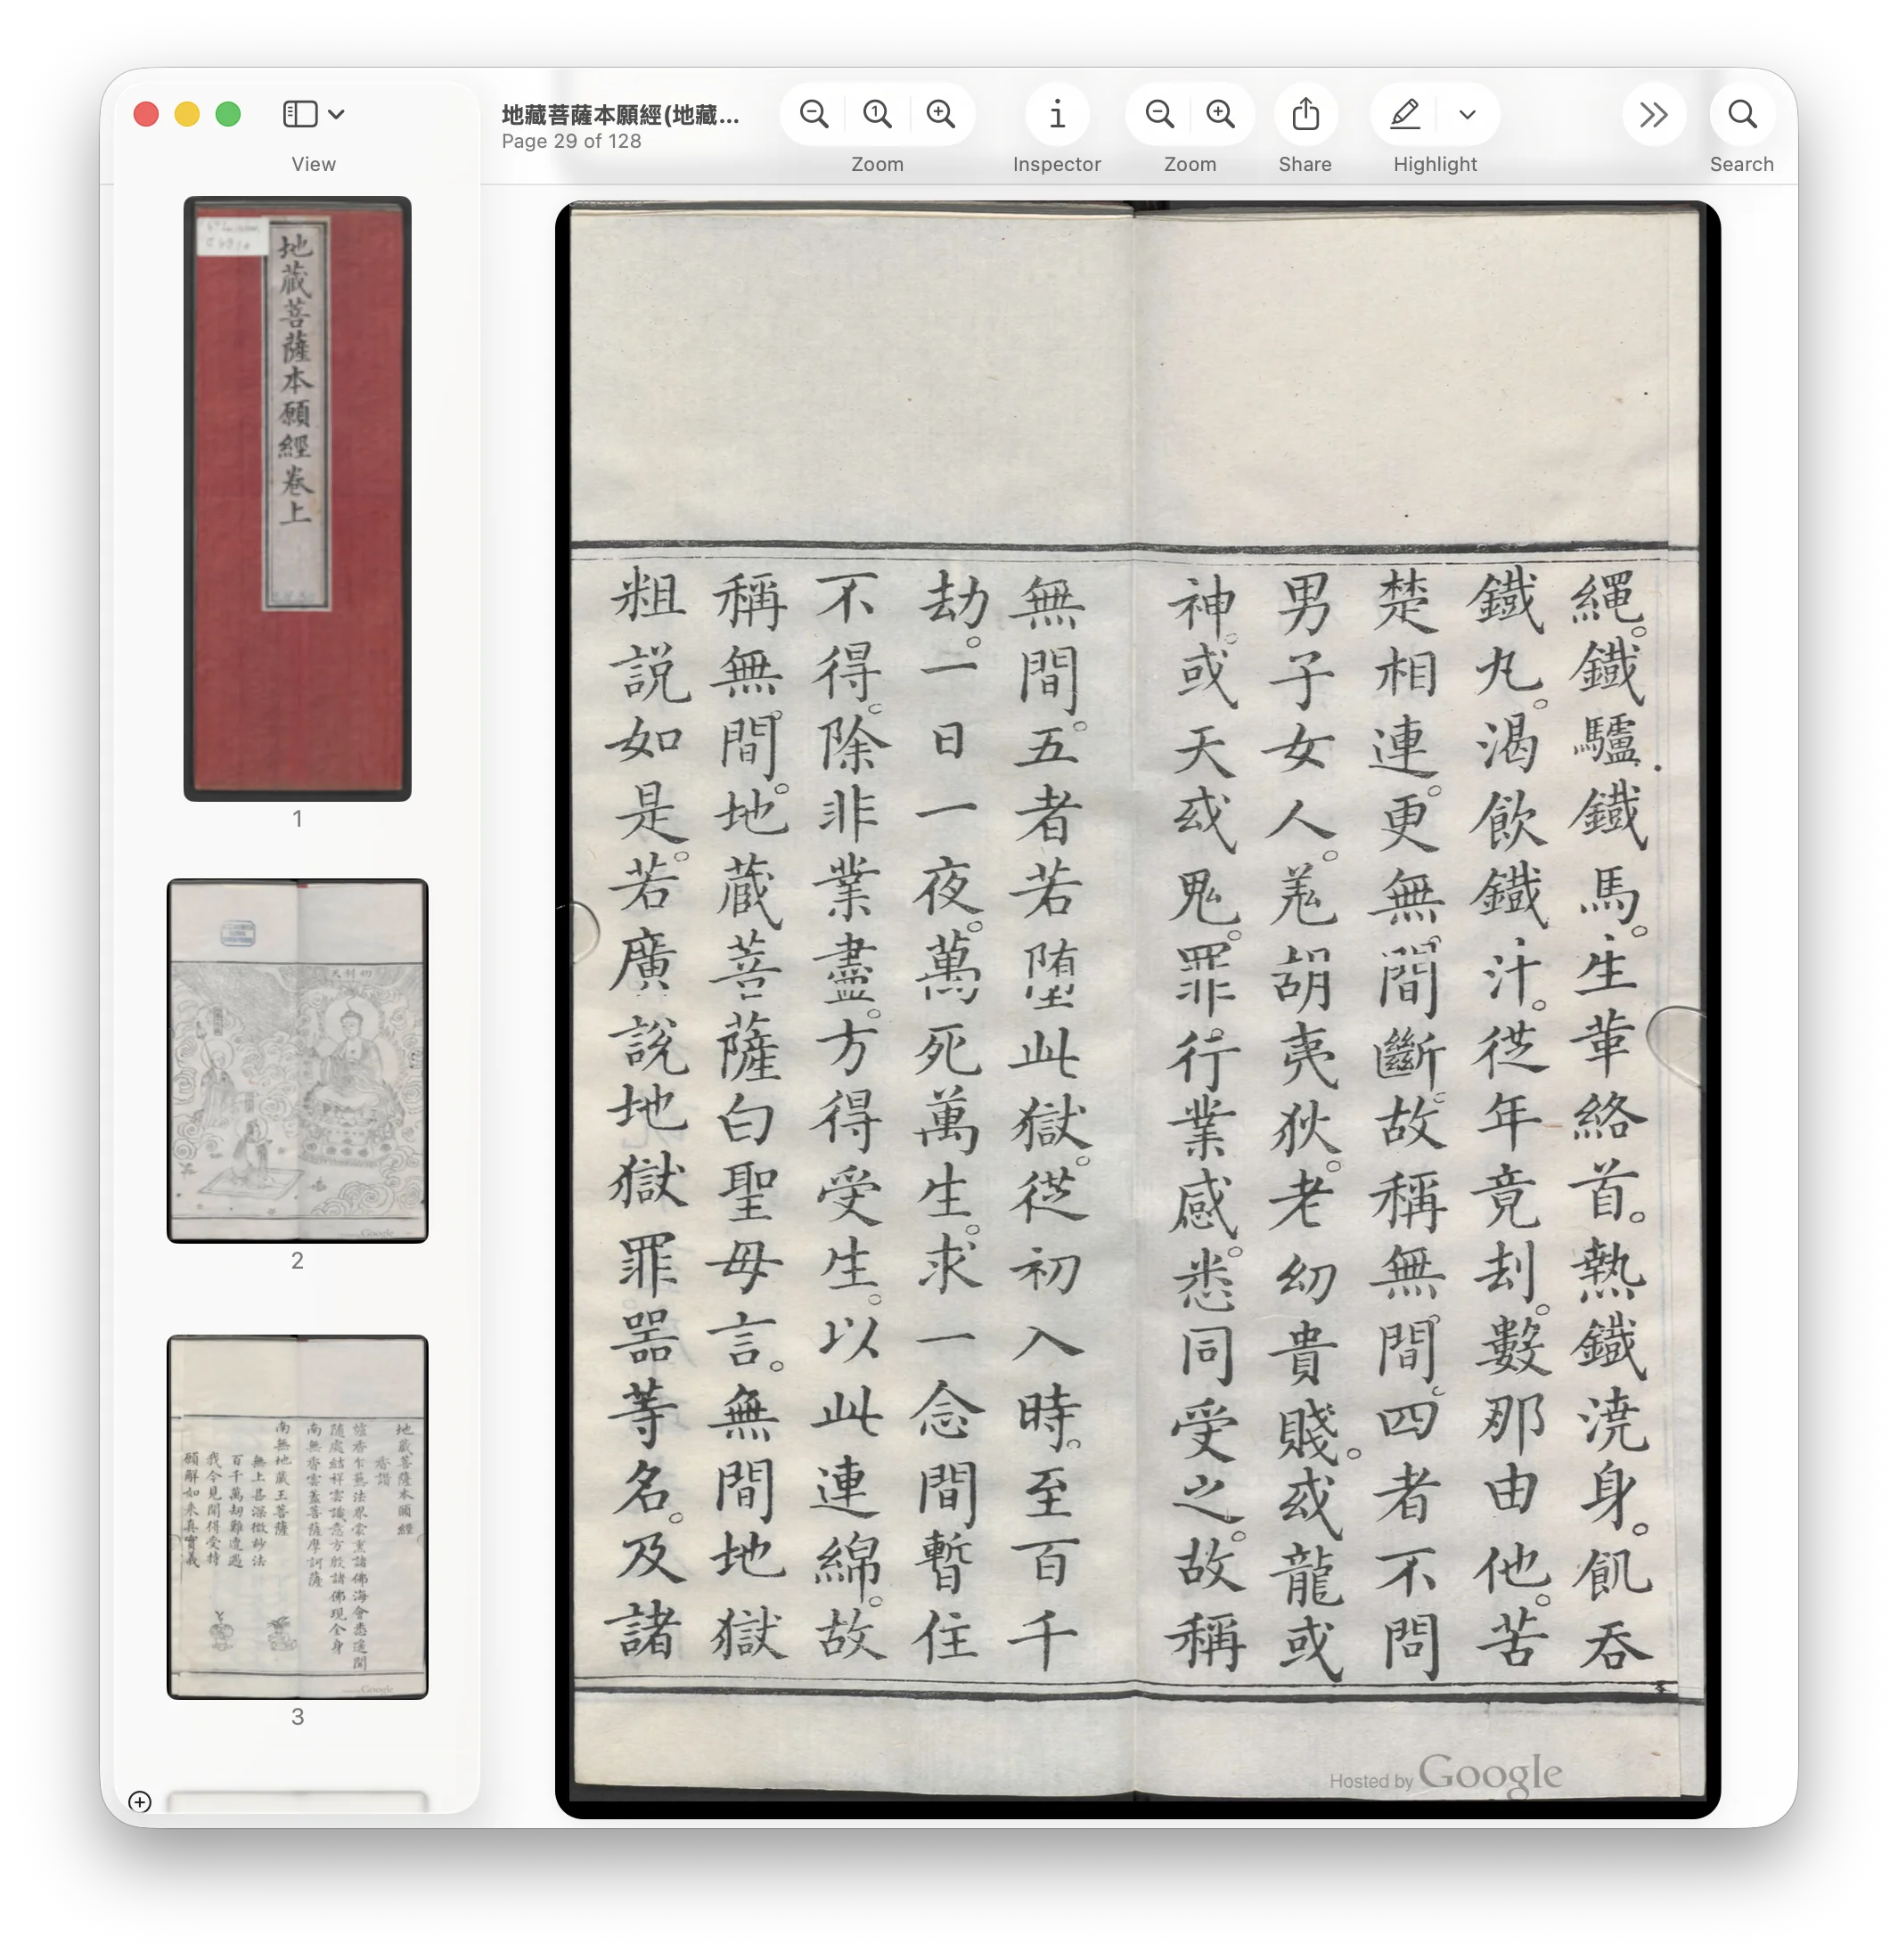 地藏菩薩本願經(地藏...
Page 29 of 128
View
Zoom
Inspector
Zoom
Share
Highlight
Search
地藏菩薩本願經卷上
1
2
3
繩。鐵驢鐵馬。生革絡首。熱鐵澆身。飢吞
鐵丸。渴飲鐵汁。從年竟刦。數那由他。苦
楚相連。更無間斷。故稱無間。四者不問
男子女人。羗胡夷狄。老幼貴賤。或龍或
神。或天或鬼。罪行業感。悉同受之。故稱
無間。五者若墮此獄。從初入時。至百千
劫。一日一夜。萬死萬生。求一念間暫住
不得。除非業盡。方得受生。以此連綿。故
稱無間。地藏菩薩白聖母言。無間地獄
粗說如是。若廣說地獄罪器等名。及諸
Hosted by Google